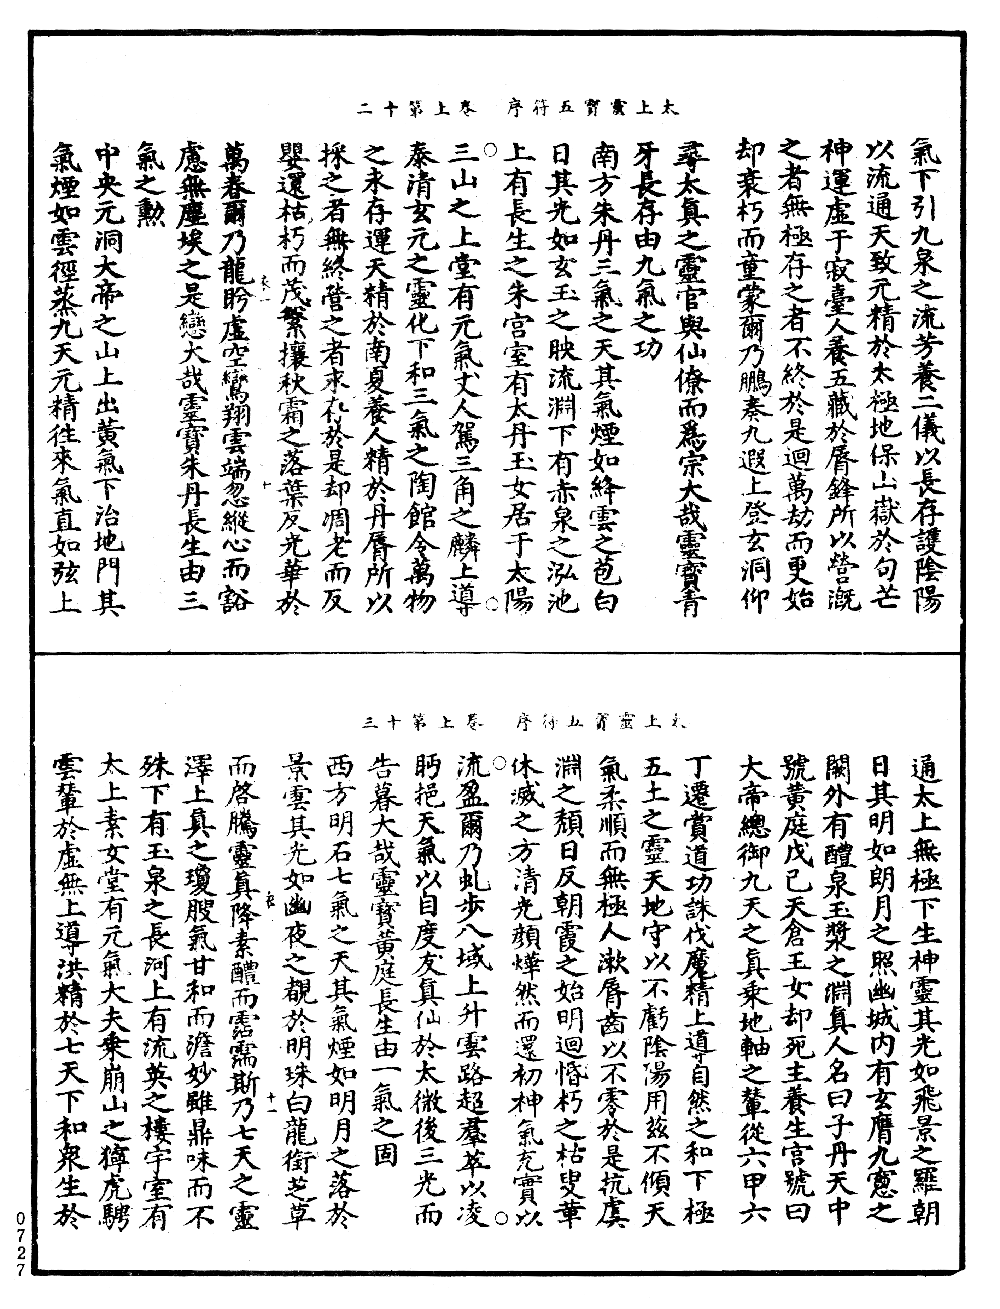 太上靈寶五符序 卷上第十二
氣下引九泉之流芳養二儀以長存護陰陽
以流通天致元精於太極地保山嶽於句芒
神運虛于寂臺人養五藏於脣鋒所以營溉
之者無極存之者不終於是迴萬劫而更始
却衰朽而童蒙爾乃鵬奏九遐上登玄洞仰
尋太真之靈官與仙僚而爲宗大哉靈寶青
牙長存由九氣之功
南方朱丹三氣之天其氣煙如絳雲之苞白
日其光如玄玉之映流淵下有赤泉之泓池
上有長生之朱宫室有太丹玉女居于太陽
三山之上堂有元氣丈人駕三角之麟上導
泰清玄元之靈化下和三氣之陶館令萬物
之來存運天精於南夏養人精於丹脣所以
採之者無終營之者永存於是却凋老而反
嬰還枯朽而茂繁攘秋霜之落葉反光華於
萬春爾乃龍眄虛空鸞翔雲端忽縱心而豁
慮無塵埃之是戀大哉靈寶朱丹長生由三
氣之勲
中央元洞大帝之山上出黄氣下治地門其
氣煙如雲徑蒸九天元精往來氣直如弦上
太上靈寶五符序 卷上第十三
通太上無極下生神靈其光如飛景之羅朝
日其明如朗月之照幽城内有玄膺九窻之
闕外有醴泉玉漿之淵真人名曰子丹天中
號黄庭戊己天倉玉女却死主養生官號曰
大帝總御九天之真乘地軸之輦從六甲六
丁遷賞道功誅伐魔精上導自然之和下極
五土之靈天地守以不虧陰陽用兹不傾天
氣柔順而無極人漱脣齒以不零於是抗虞
淵之頹日反朝霞之始明迴惛朽之枯叟華
休滅之方清光顔燁然而還初神氣充實以
流盈爾乃虬步八域上升雲路超羣萃以凌
眄挹天氣以自度友真仙於太微後三光而
告暮大哉靈寶黄庭長生由一氣之固
西方明石七氣之天其氣煙如明月之落於
景雲其光如幽夜之覩於明珠白龍銜芝草
而啓騰靈真降素醴而霑濡斯乃七天之靈
澤上真之瓊膄氣甘和而澹妙雖鼎味而不
殊下有玉泉之長河上有流英之棲宇室有
太上素女堂有元氣大夫乘崩山之獰虎騁
雲輦於虛無上導洪精於七天下和衆生於
0727